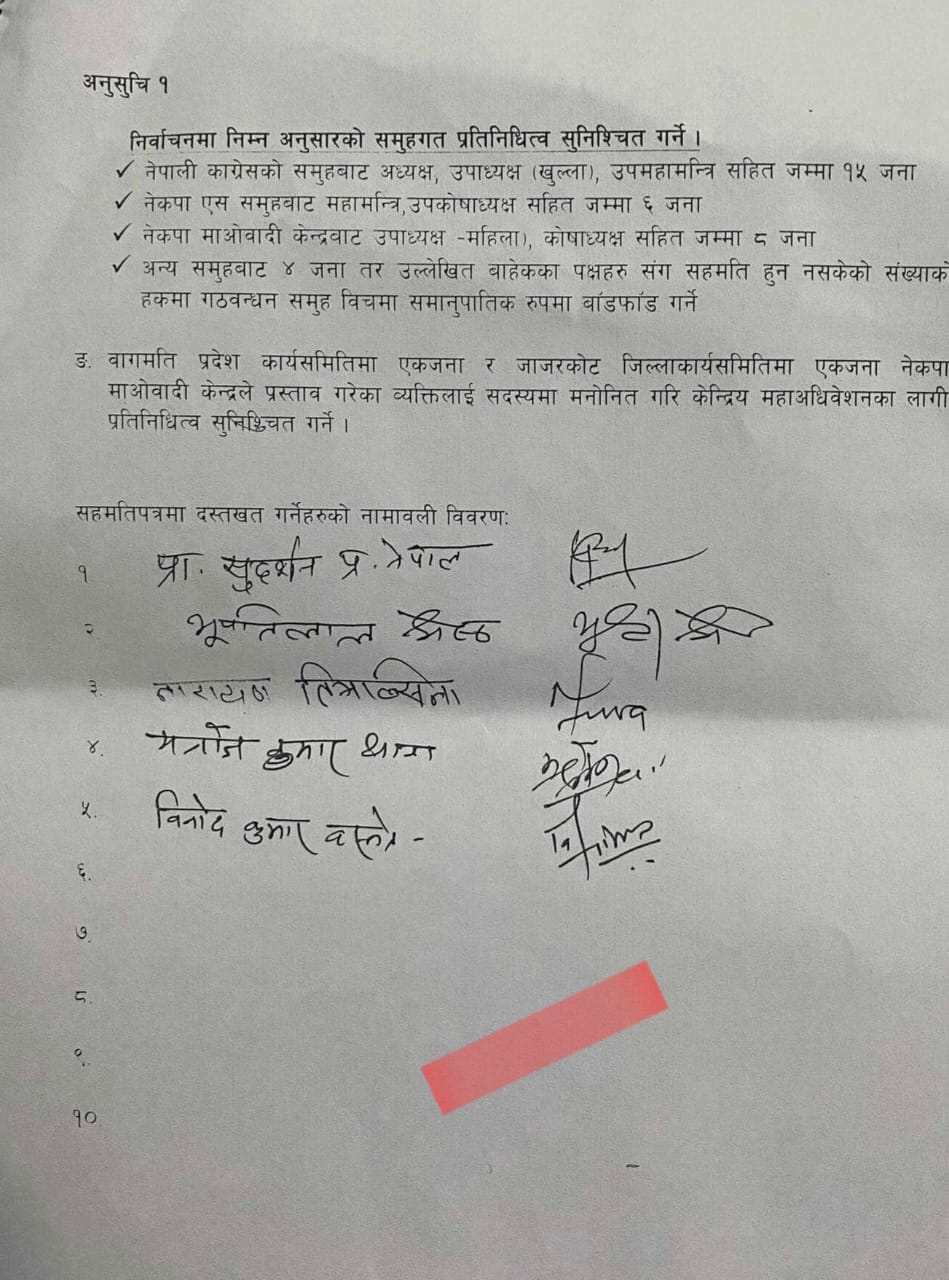 अनुसुचि १
निर्वाचनमा निम्न अनुसारको समुहगत प्रतिनिधित्व सुनिश्चित गर्ने ।
✓ नेपाली काग्रेसको समुहबाट अध्यक्ष, उपाध्यक्ष (खुल्ला), उपमहामन्त्रि सहित जम्मा १५ जना
✓ नेकपा एस समुहबाट महामन्त्रि,उपकोषाध्यक्ष सहित जम्मा ६ जना
✓ नेकपा माओवादी केन्द्रबाट उपाध्यक्ष -महिला), कोषाध्यक्ष सहित जम्मा ८ जना
✓ अन्य समुहबाट ४ जना तर उल्लेखित बाहेकका पक्षहरु संग सहमति हुन नसकेको संख्याको
हकमा गठवन्धन समुह विचमा समानुपातिक रुपमा बाँडफाँड गर्ने
ङ. वागमति प्रदेश कार्यसमितिमा एकजना र जाजरकोट जिल्लाकार्यसमितिमा एकजना नेकपा
माओवादी केन्द्रले प्रस्ताव गरेका व्यक्तिलाई सदस्यमा मनोनित गरि केन्द्रिय महाअधिवेशनका लागी
प्रतिनिधित्व सुनिश्चित गर्ने ।
सहमतिपत्रमा दस्तखत गर्नेहरुको नामावली विवरण:
१ प्रा. सुदर्शन प्र. नेपाल
२ भूपतिलाल श्रेष्ठ
३. नारायण तिमल्सिना
४. मनोज कुमार थापा
५. विनोद कुमार
६.
७.
८.
९.
१०.